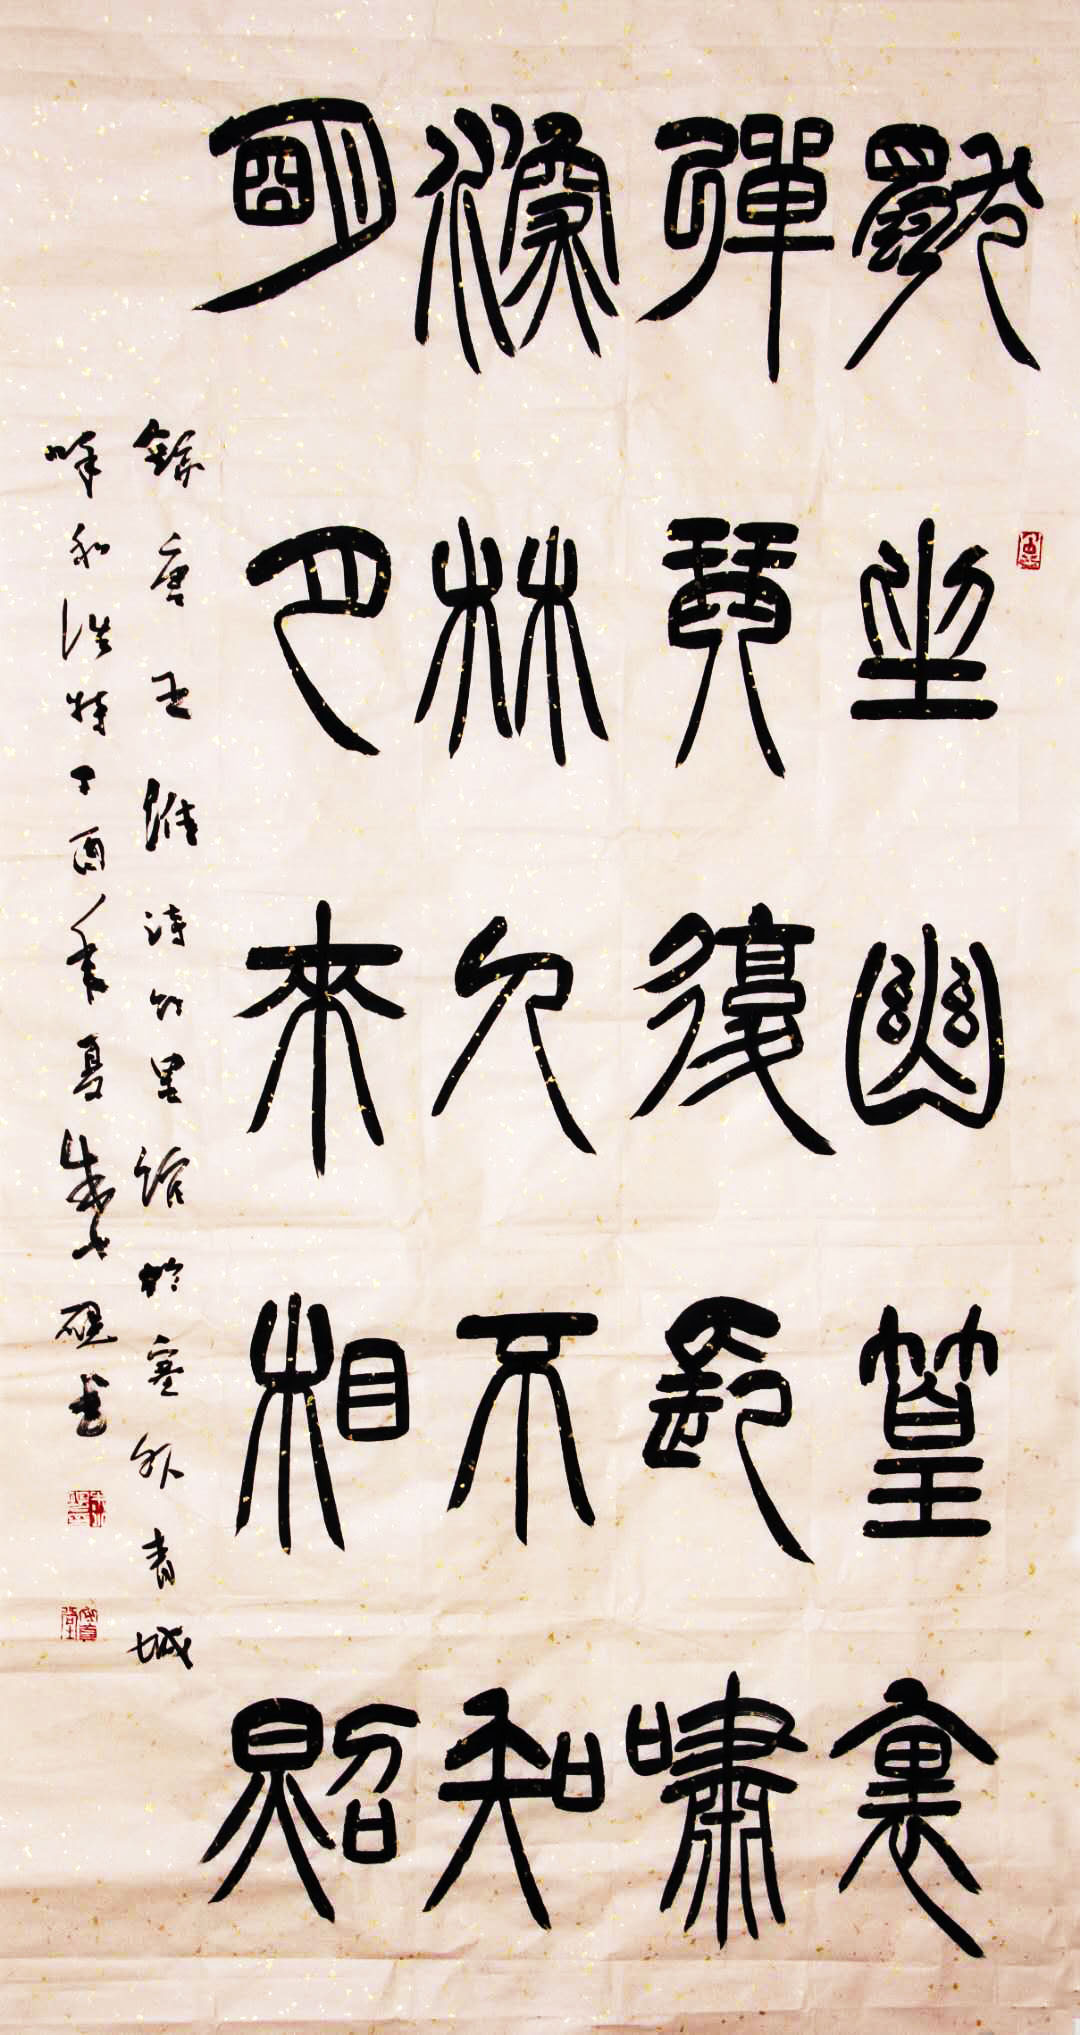 獨坐幽篁裏
彈琴復長嘯
深林人不知
明月來相照
錄唐王維詩竹里館於塞外青城
呼和浩特丁酉年夏朱硯书